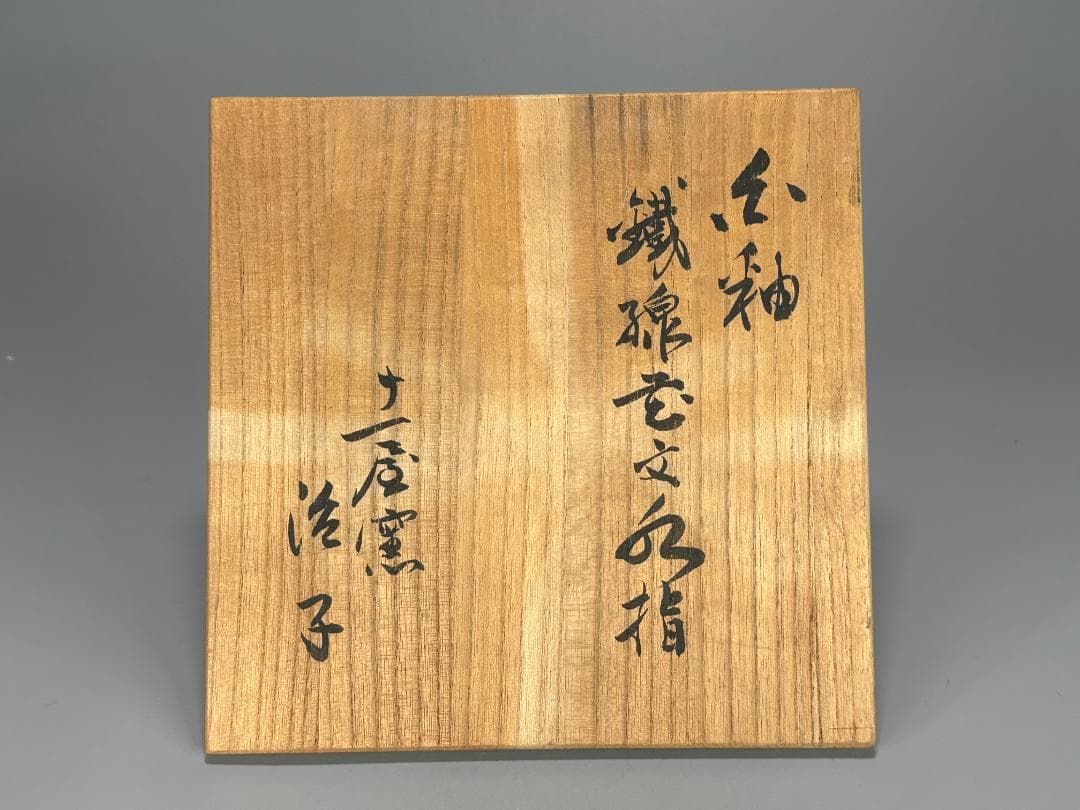 白釉
鐵線花文水指
十一屋窯
治子